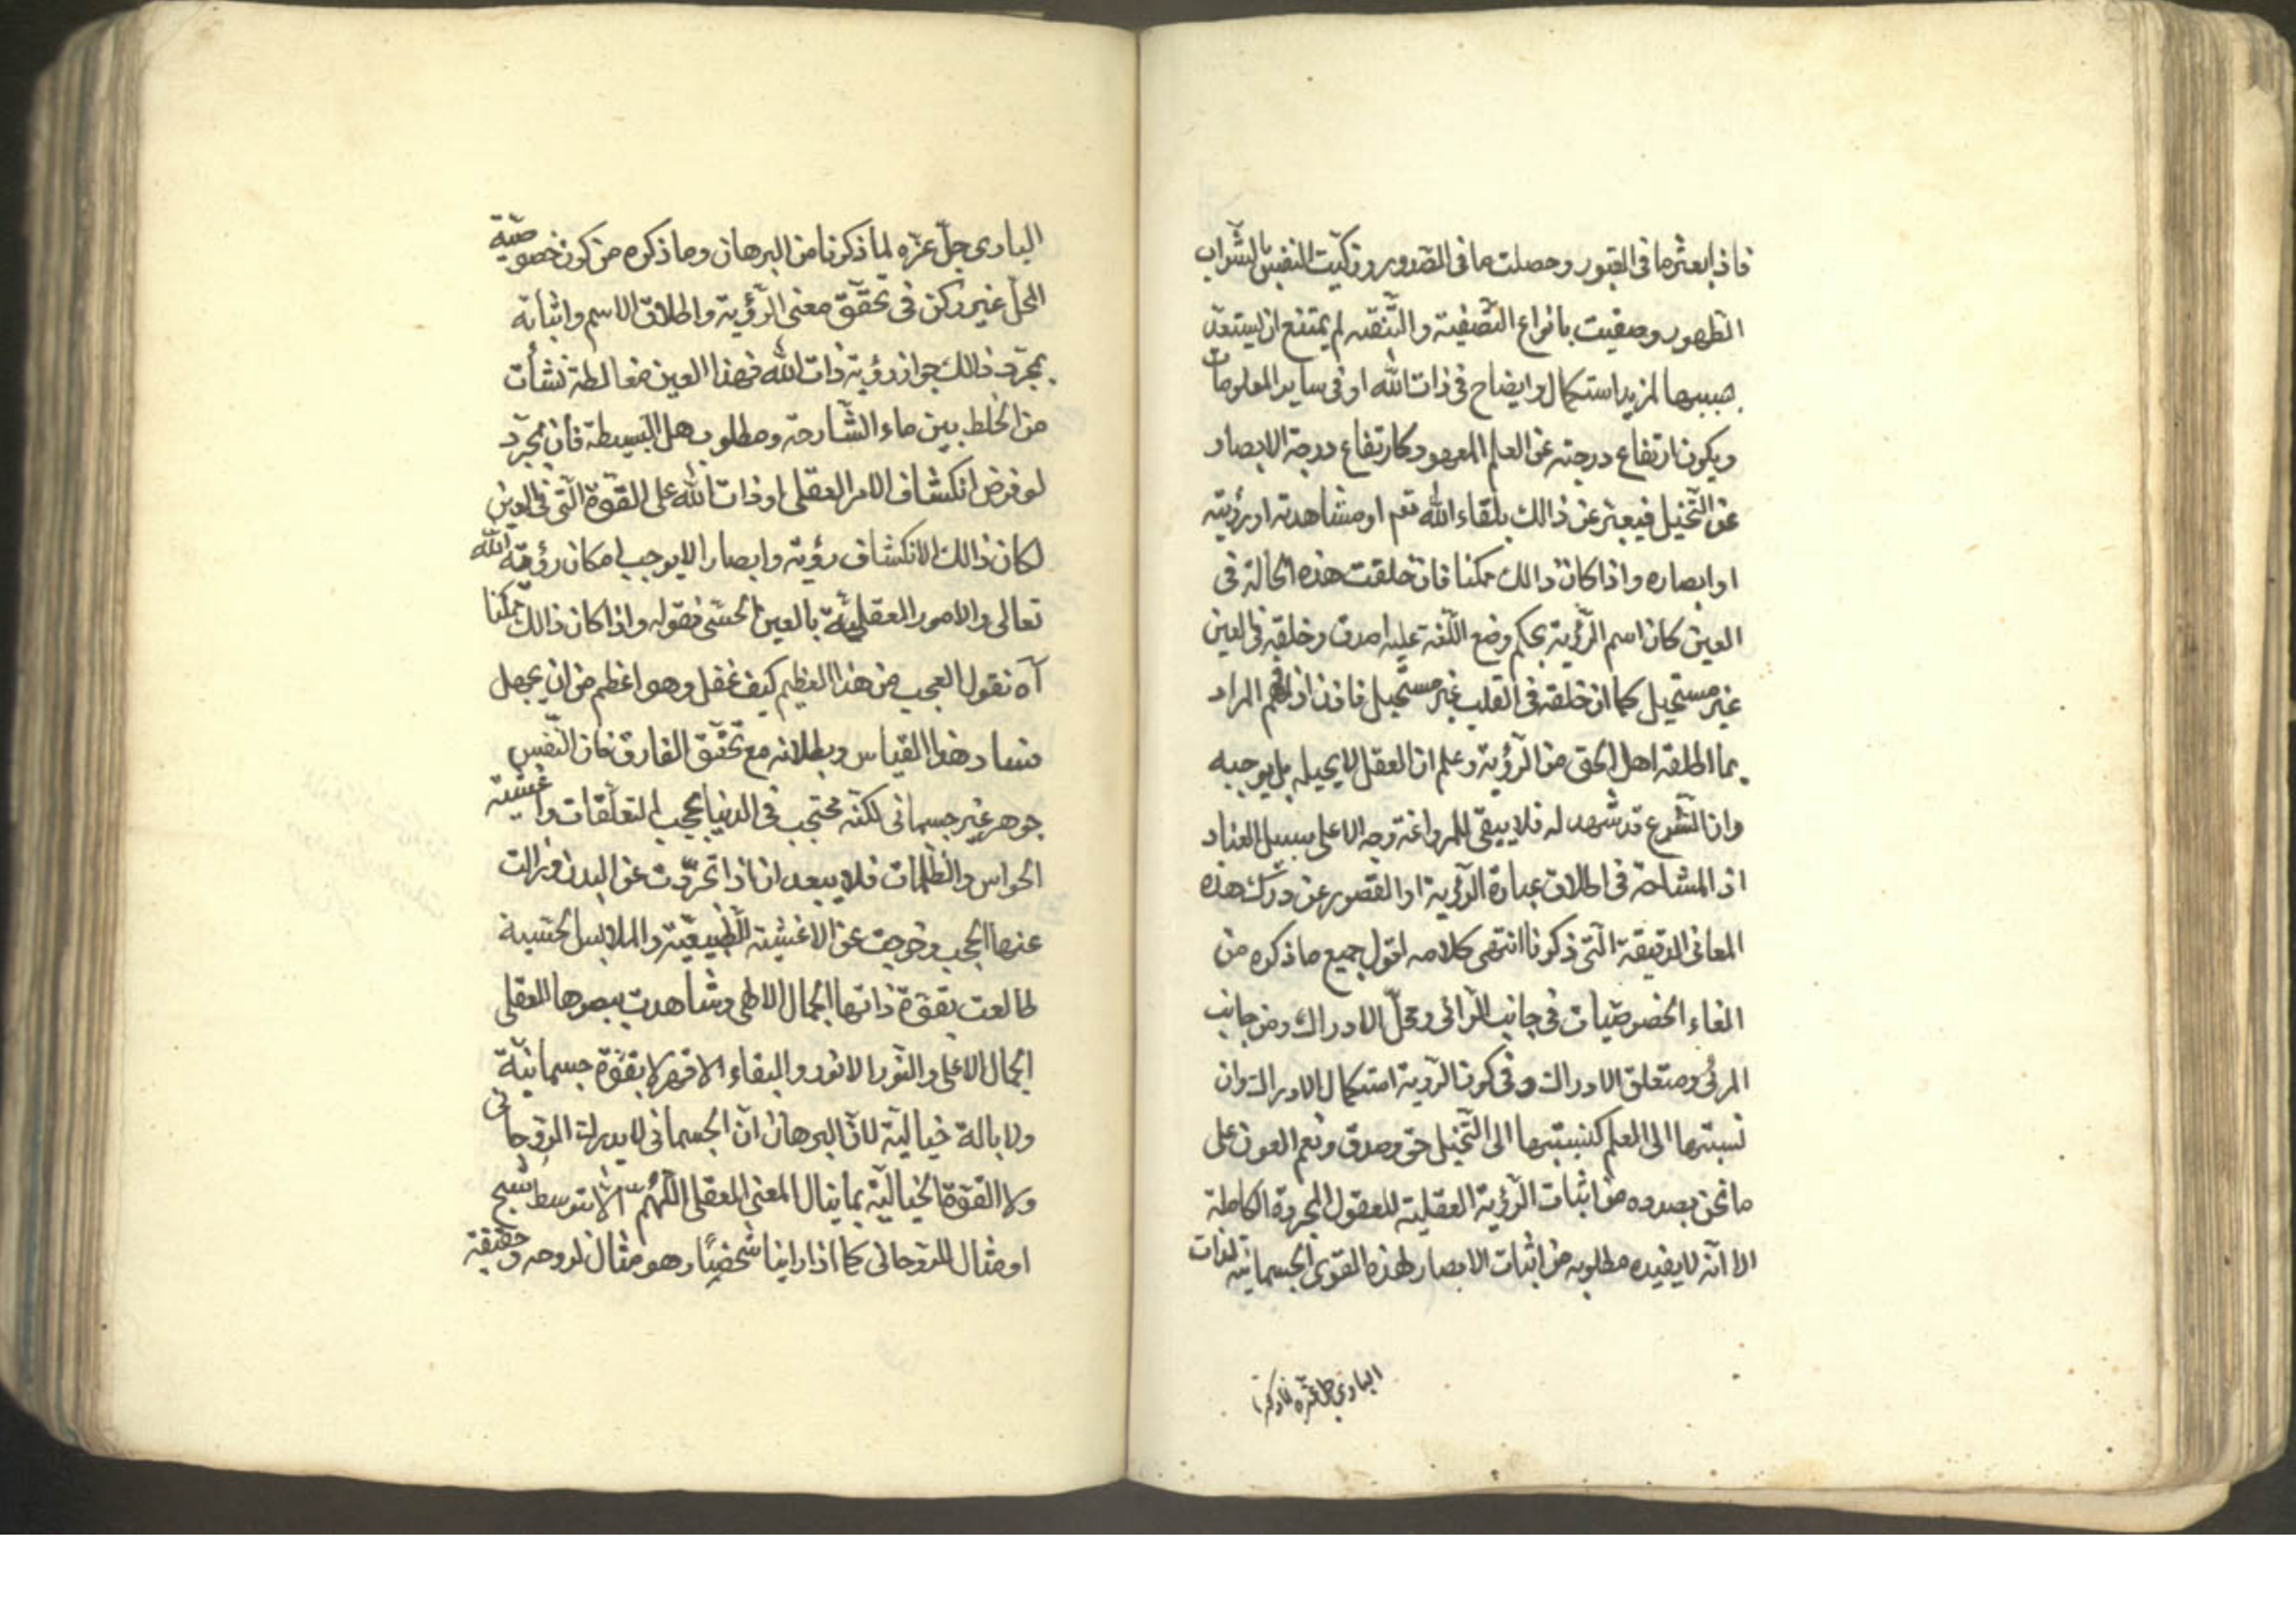 فاذا بعثر ما فى القبور وحصلت ما فى الصدور وزكيت النفس بالشراب
الطهور وصفيت بانواع التصفية والتنقيه لم يمتنع ان يستعد
بسببها لمزيد استكمال وايضاح فى ذات الله او فى ساير المعلومات
ويكون ارتفاع درجته عن العلم المعهود كارتفاع درجة الابصار
عن التخيل فيعبر عن ذالك بلقاء الله تعم او مشاهدته او رؤيته
او ابصاره واذا كان ذالك ممكنا فان خلقت هذه الحالة فى
العين كان اسم الرؤية بحكم وضع اللغة عليه اصدق وخلقه فى العين
غير مستحيل كما ان خلقه فى القلب غير مستحيل فاذن اذ افهم المراد
بما اطلقه اهل الحق من الرؤية وعلم ان العقل لا يحيله بل يوجبه
وان الشرع قد شهد له فلا يبقى للمراوغة وجه الا على سبيل العناد
اذ المشاحة فى اطلاق عبارة الرؤية او القصور عن درك هذه
المعانى الدقيقة التى ذكرنا انتهى كلامه اقول جميع ما ذكره من
الغاء الخصوصيات فى جانب الرائى ومحل الادراك ومن جانب
المرئى ومتعلق الادراك وفى كون الروية استكمال الادراك وان
نسبتها الى العلم كنسبتها الى التخيل حق وصدق ونعم العون على
ما نحن بصدده من اثبات الرؤية العقلية للعقول المجردة الكاملة
الا انه لا يفيده مطلوبه من اثبات الابصار لهذه القوى الجسمانية لذات
البارى جل عزه لما ذكرنا
البارى جل عزه لما ذكرنا من البرهان وما ذكره من كون خصوصية
المحل غير ركن فى تحقق معنى الرؤية واطلاق الاسم واثباته
بمجرد ذالك جواز رؤية ذات الله فهذا العين مغالطة نشأت
من الخلط بين ماء الشارحة ومطلوب هل البسيطة فان مجرد
لو فرض انكشاف الامر العقلى او ذات الله على القوة التى فى العين
لكان ذالك الانكشاف رؤية وابصارا لا يوجب امكان رؤية الله
تعالى والامور العقلية بالعين الحسى فقوله واذا كان ذالك ممكنا
آه نقول العجب من هذا العظيم كيف غفل وهو اعظم من ان يجهل
فساد هذا القياس وبطلانه مع تحقق الفارق فان النفس
جوهر غير جسمانى لكنه محتجب فى الدنيا بحجب التعلقات واغشية
الحواس والظلمات فلا يبعد ان اذا تجردت عن البدن وزالت
عنها الحجب وخرجت عن الاغشية الطبيعية والملابس الحسية
طالعت بقوة ذاتها الجمال الالهى وشاهدت ببصرها العقلى
الجمال الاعلى والنور الانور والبقاء الاقهر لا بقوة جسمانية
ولا بالة خيالية لان البرهان ان الجسمانى لا يدرك الروحانى
ولا القوة الخيالية بما ينال المعنى العقلى اللهم الا بتوسط شبح
او مثال للروحانى كما اذا راينا شخصيا وهو مثال لروحه وحقيقة